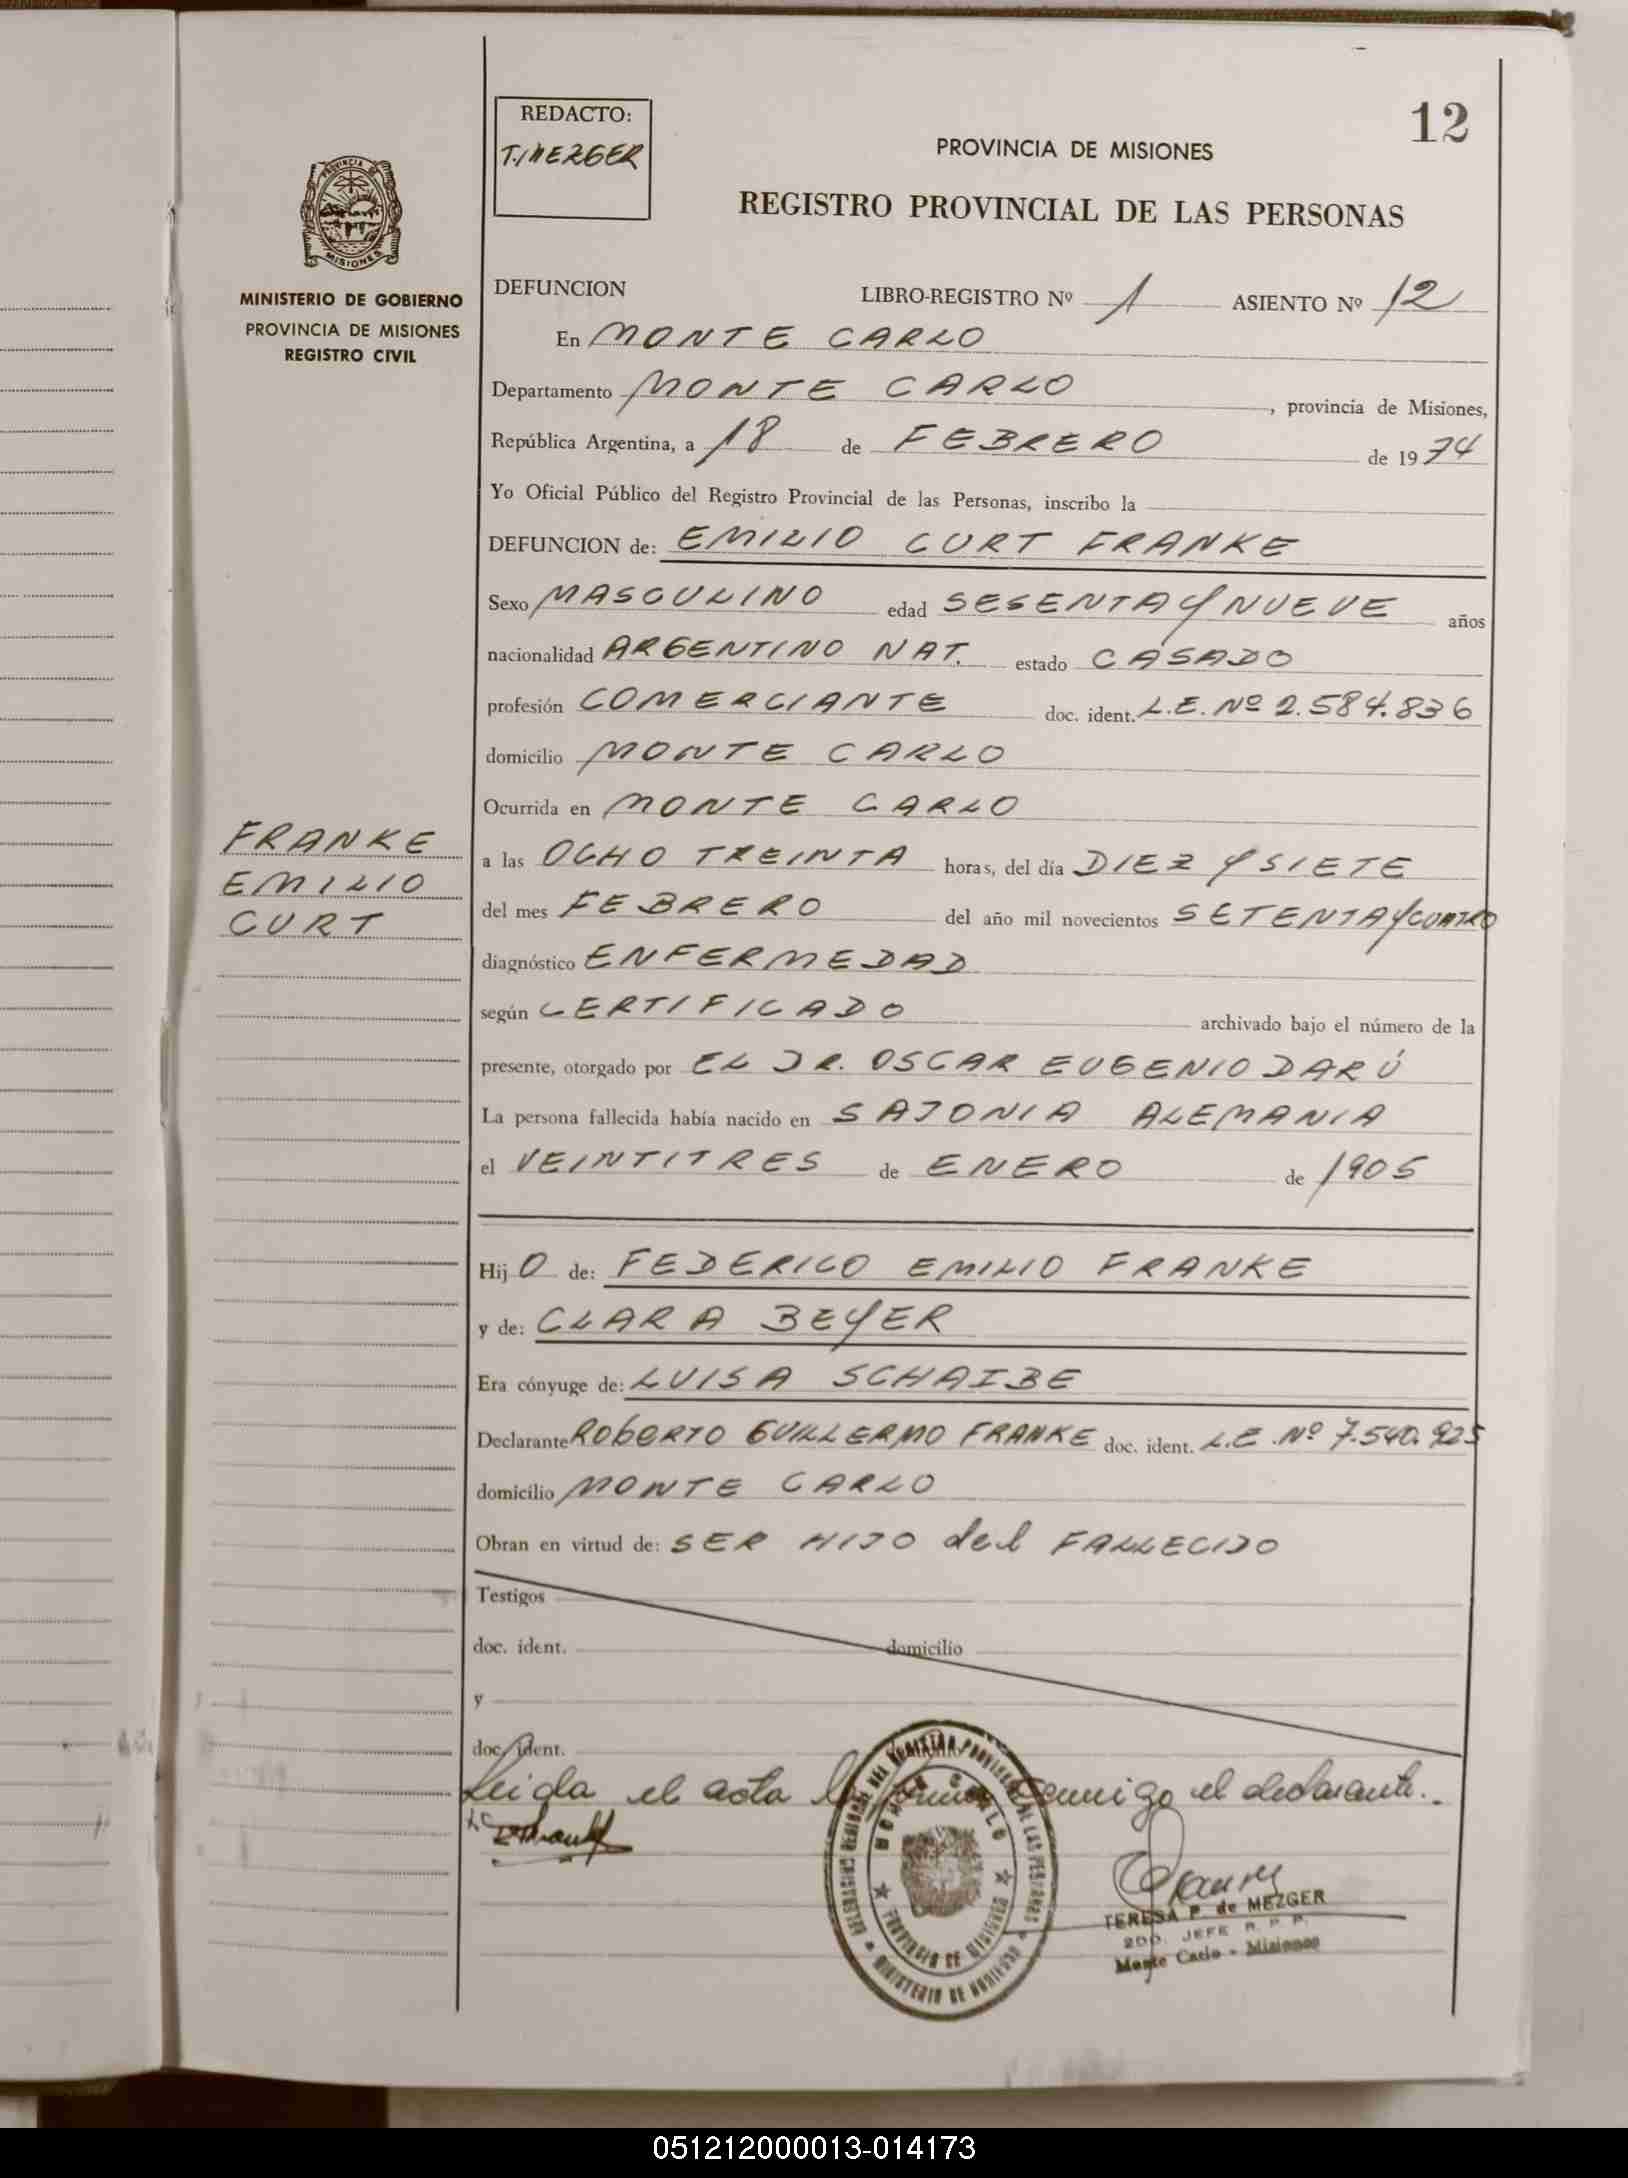 12
REDACTO:
T. MEZGER
PROVINCIA DE MISIONES
REGISTRO PROVINCIAL DE LAS PERSONAS
PROVINCIA DE
MISIONES
MINISTERIO DE GOBIERNO
PROVINCIA DE MISIONES
REGISTRO CIVIL
DEFUNCION LIBRO-REGISTRO Nº 1 ASIENTO Nº 12
En MONTE CARLO
Departamento MONTE CARLO, provincia de Misiones,
República Argentina, a 18 de FEBRERO de 1974
Yo Oficial Público del Registro Provincial de las Personas, inscribo la
DEFUNCION de: EMILIO CURT FRANKE
Sexo MASCULINO edad SESENTA Y NUEVE años
nacionalidad ARGENTINO NAT. estado CASADO
profesión COMERCIANTE doc. ident. L.E. Nº 2.584.836
domicilio MONTE CARLO
Ocurrida en MONTE CARLO
FRANKE
EMILIO
CURT
a las OCHO TREINTA horas, del día DIEZ Y SIETE
del mes FEBRERO del año mil novecientos SETENTA Y CUATRO
diagnóstico ENFERMEDAD
según CERTIFICADO archivado bajo el número de la
presente, otorgado por EL DR. OSCAR EUGENIO DARÚ
La persona fallecida había nacido en SAJONIA ALEMANIA
el VEINTITRES de ENERO de 1905
Hij O de: FEDERICO EMILIO FRANKE
y de: CLARA BEYER
Era cónyuge de: LUISA SCHAIBE
Declarante ROBERTO GUILLERMO FRANKE doc. ident. L.E. Nº 7.540.925
domicilio MONTE CARLO
Obran en virtud de: SER HIJO del FALLECIDO
Testigos
doc. ident. domicilio
y
doc. ident.
Leida el acta la conmigo el declarante..
MONTE CARLO
PROVINCIA DE MISIONES
MINISTERIO DE GOBIERNO
TERESA P. de MEZGER
2DO. JEFE R. P. P.
Monte Carlo - Misiones
051212000013-014173